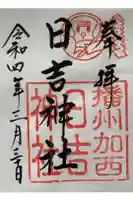 奉拝
播州加西
日吉神社
令和四年三月三日